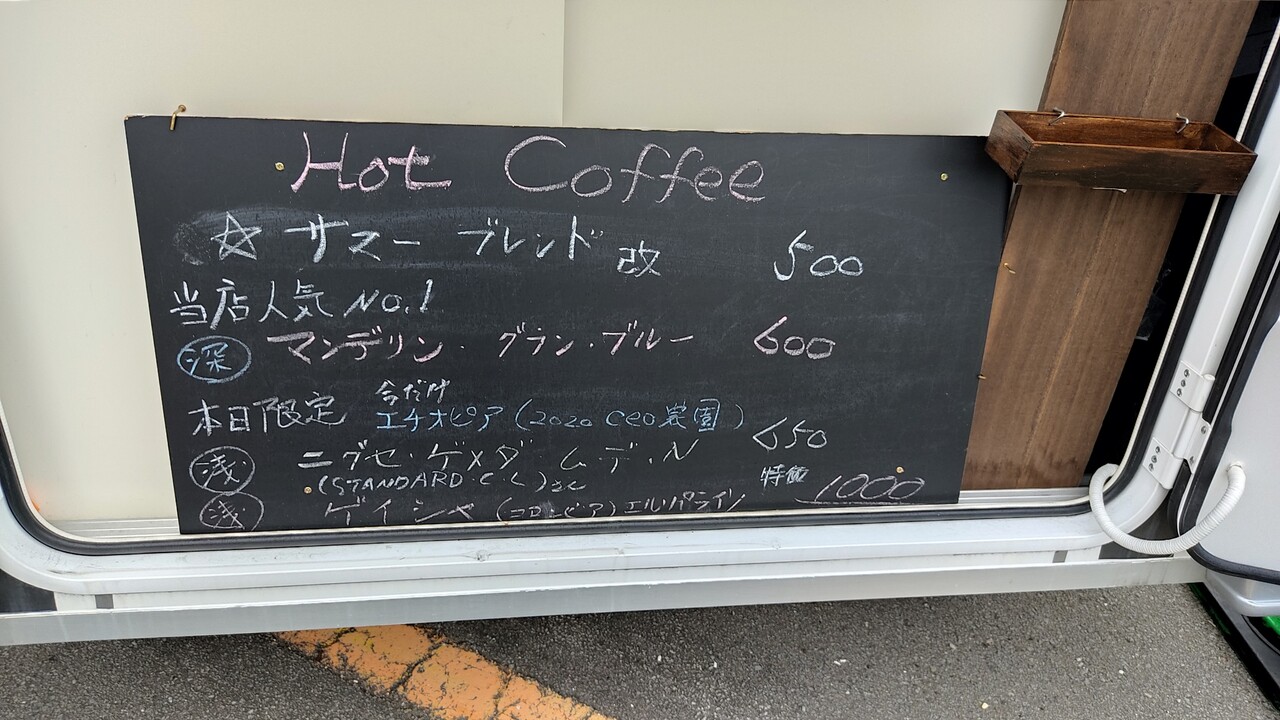 Hot Coffee
☆ サマー ブレンド 改 500
当店人気 No.1
深 マンデリン・グラン・ブルー 600
今だけ
本日限定 エチオピア (2020 COE農園) 650
浅 ニグセ・ゲメダ・ムデ・N
(STANDARD・C・L)
浅 ゲイシャ (コロンビア) エルパライソ 特価 1000